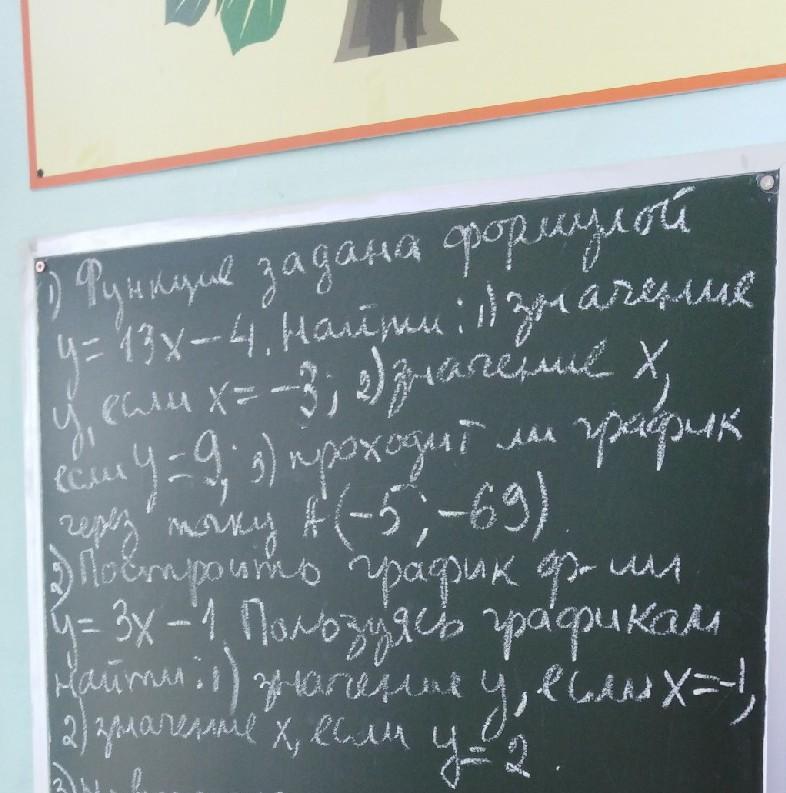 1) Функция задана формулой
y = 13x - 4. Найти: 1) значение
y, если x = -3; 2) значение x,
если y = 9; 3) проходит ли график
через точку A(-5; -69).
2) Построить график ф-ии
y = 3x - 1. Пользуясь графикам
найти: 1) значение y, если x = -1,
2) значение x, если y = 2.
3)